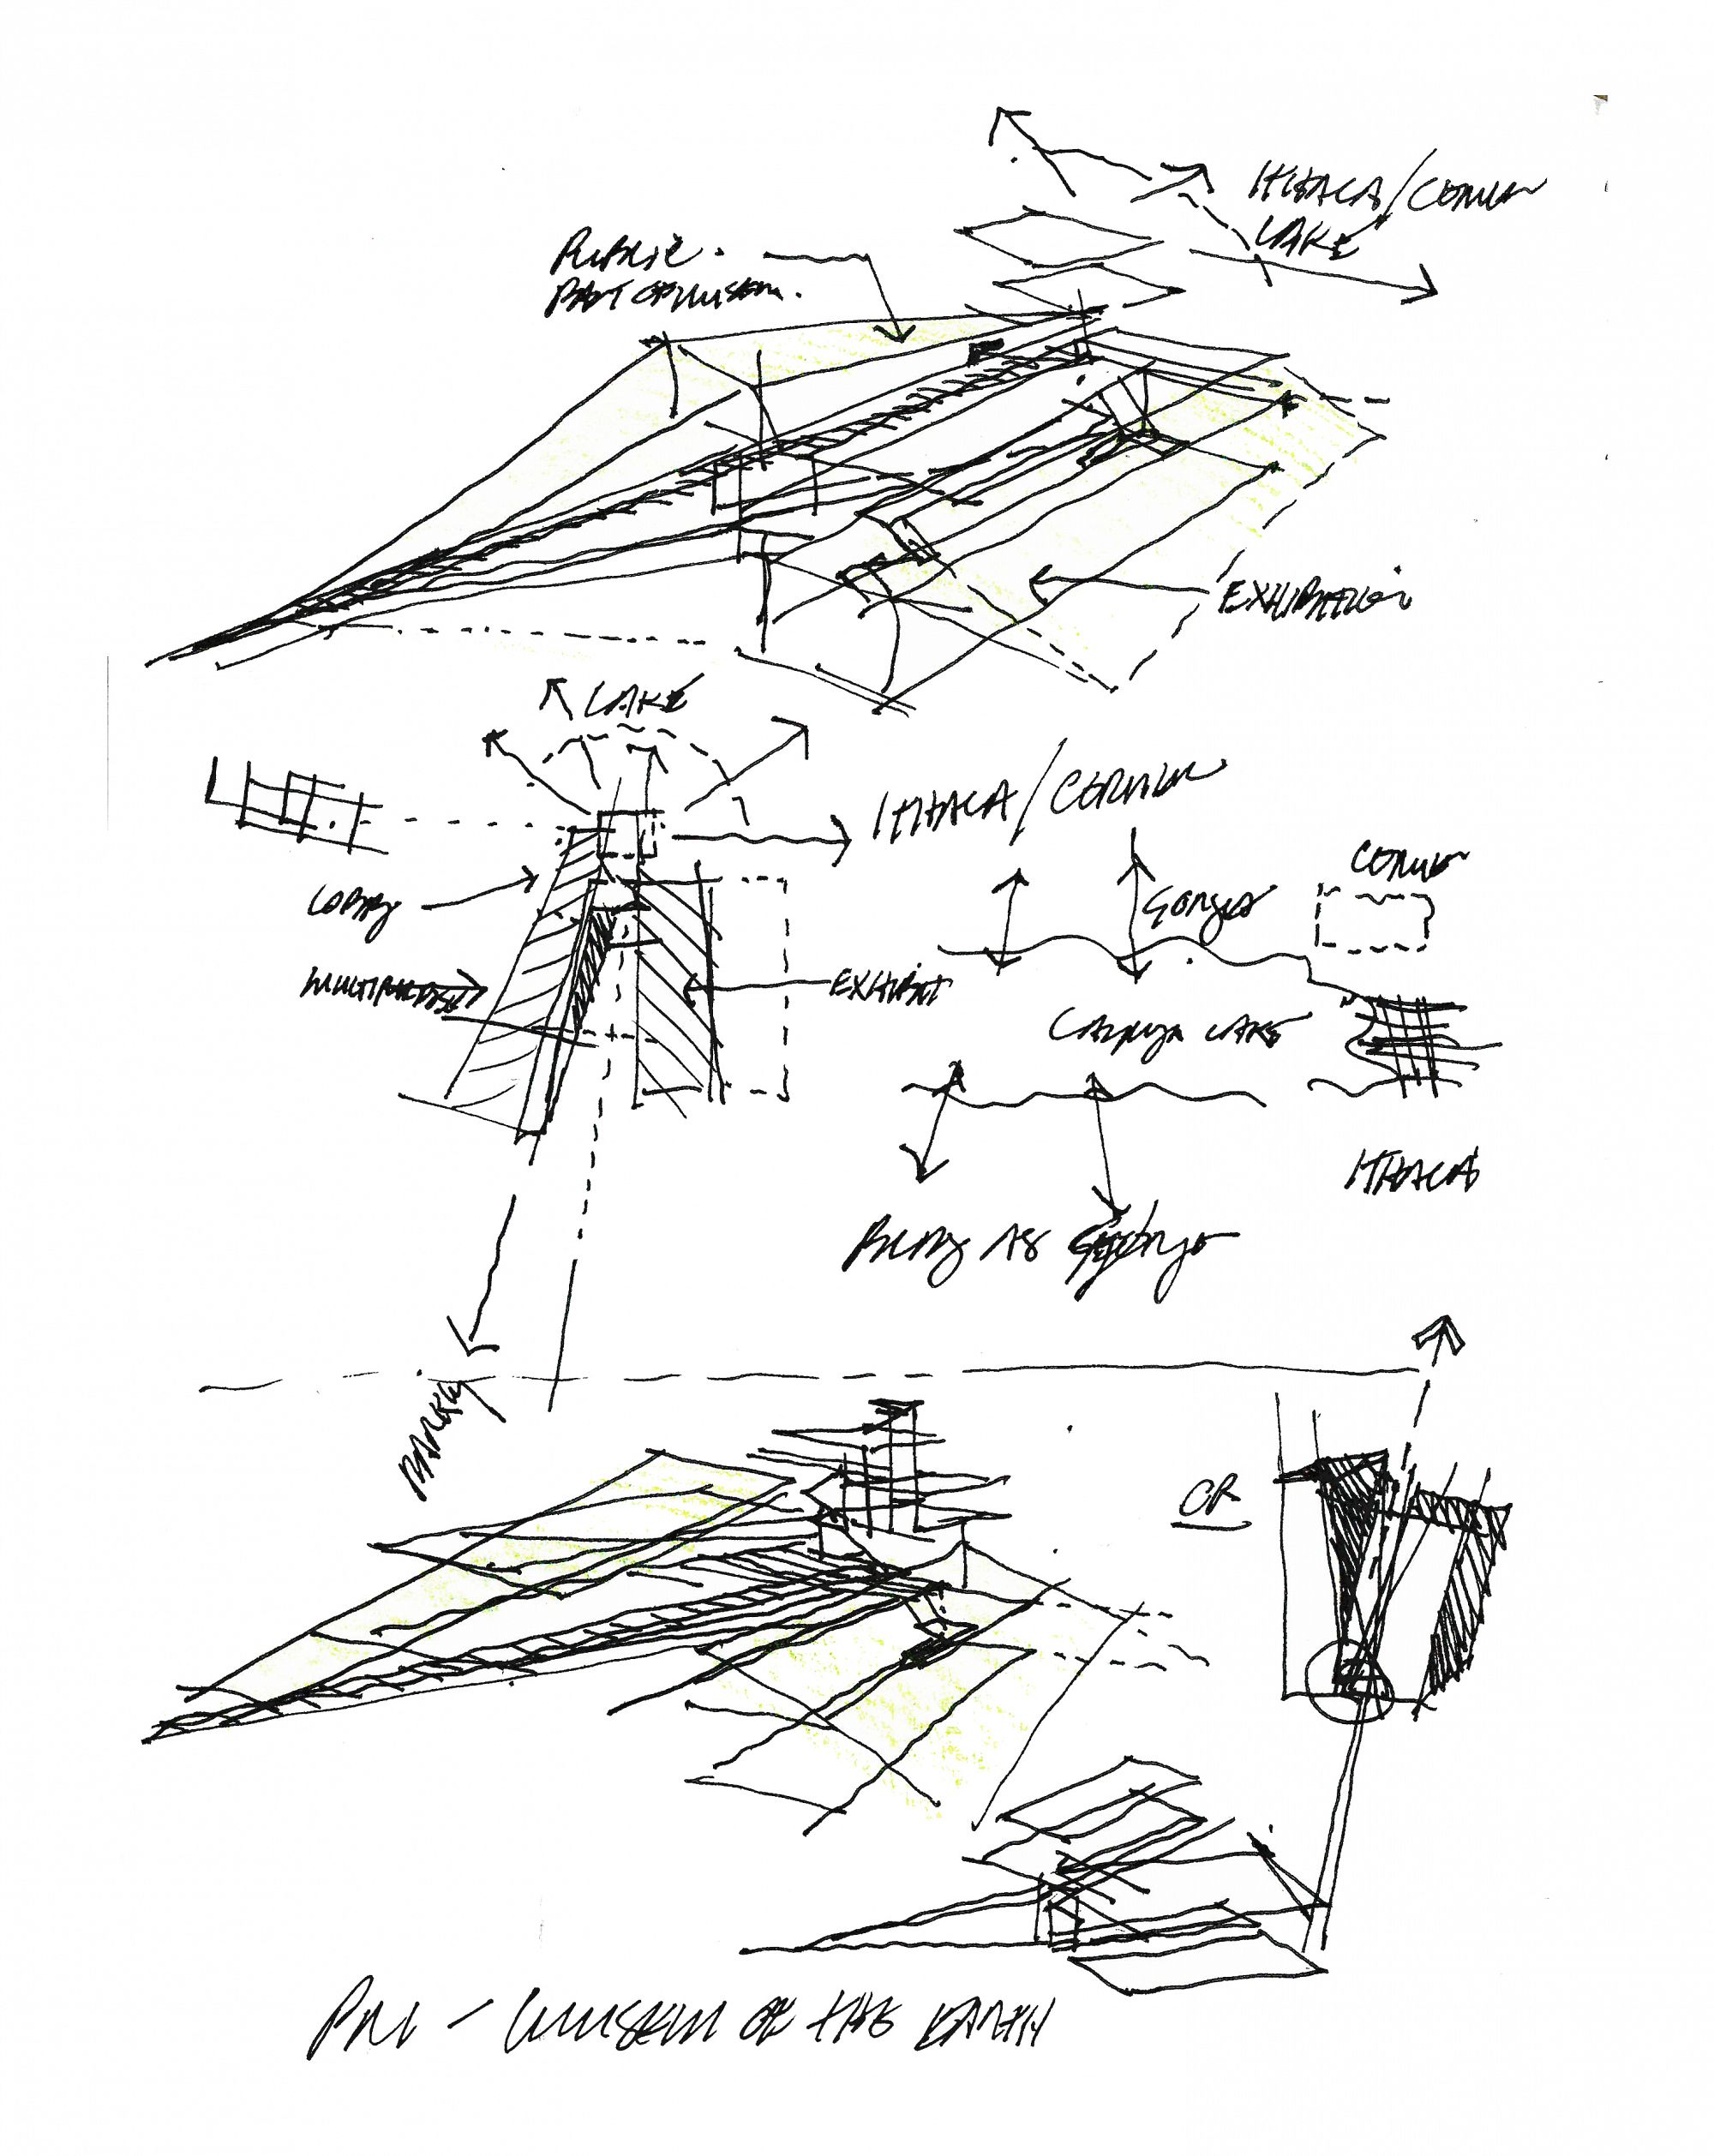 ITHACA/CORNELL
LAKE
PUBLIC
PART OF MUSEUM.
EXHIBITION
LAKE
ITHACA/CORNELL
CORNELL
GORGES
LOBBY
EXHIBIT
CAYUGA LAKE
ITHACA
BLDG AS GORGE
PARKING
OR
PRI - MUSEUM OF THE EARTH